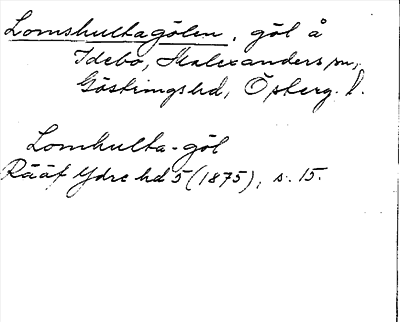 Lomshultagölen, göl å
Idebo, St alexanders m,
Göstringshd, Öpterg. l.
Lomhulta-göl
Rääf Ydre hd 5 (1875), s. 15.